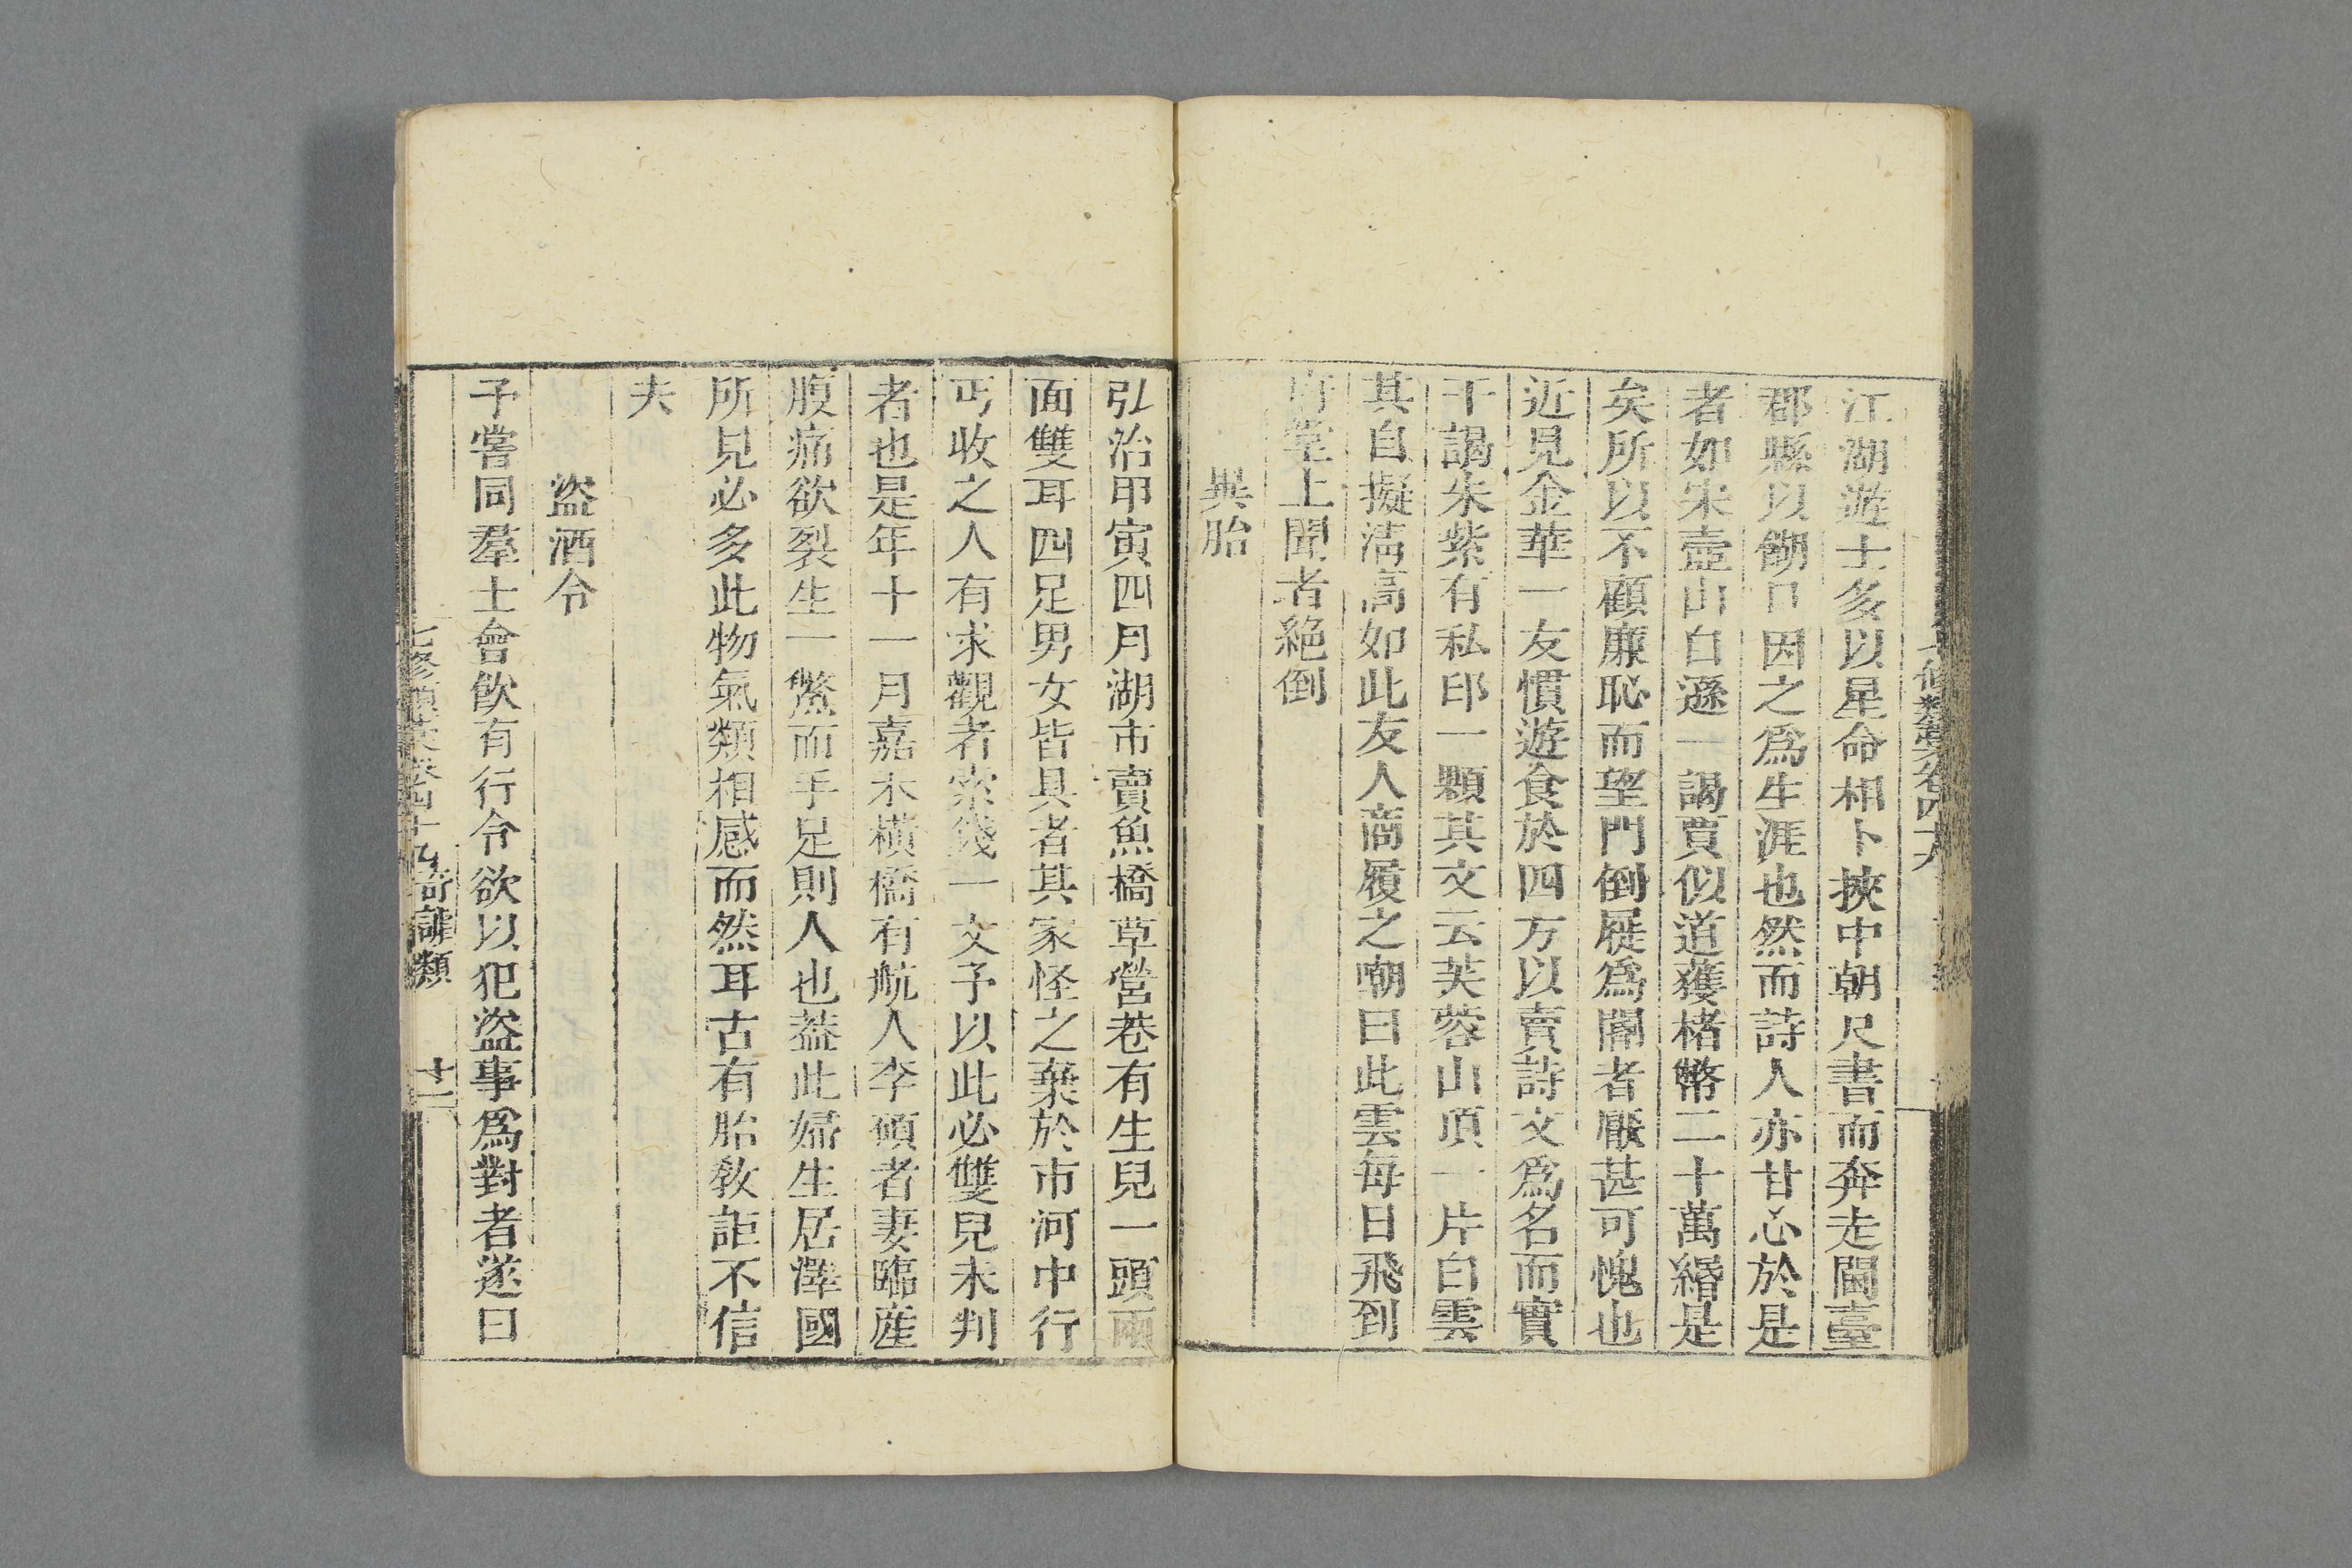 江湖遊士多以星命相卜挾中朝尺書而奔走閫臺
郡縣以餬口因之爲生涯也然而詩人亦甘心於是
者如宋壺山自遜一謁賈似道獲楮幣二十萬緡是
矣所以不顧廉恥而望門倒屣爲閽者厭甚可愧也
近見金華一友慣遊食於四方以賣詩文爲名而實
干謁朱紫有私印一顆其文云芙蓉山頂一片白雲
其自擬清高如此友人商履之嘲曰此雲每日飛到
府堂上聞者絕倒
異胎
弘治甲寅四月湖市賣魚橋草營巷有生兒一頭兩
面雙耳四足男女皆具者其家怪之棄於市河中行
丐收之人有求觀者索錢一文予以此必雙兒未判
者也是年十一月嘉禾橫橋有航人李碩者妻臨産
腹痛欲裂生一鱉而手足則人也葢此婦生居澤國
所見必多此物氣類相感而然耳古有胎敎詎不信
夫
盜酒令
予嘗同羣士會飮有行令欲以犯盜事爲對者遂曰
七修類藁卷四十九奇謔類 十二